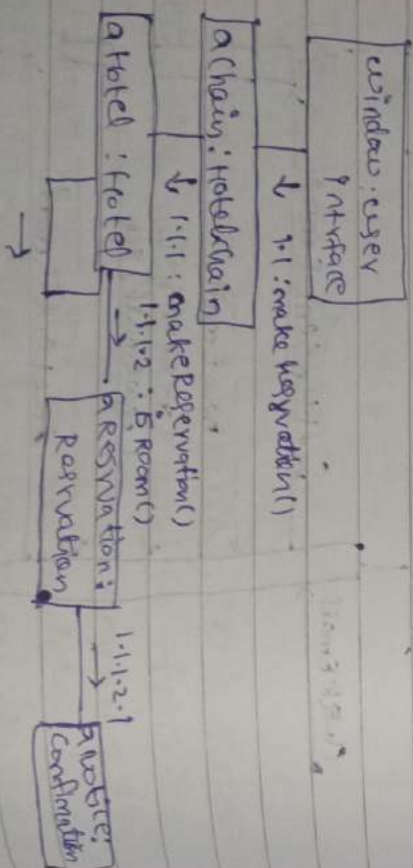 window : user
Interface
↓ 1.1 : make Resrvation()
a chain : Hotelchain
↓ 1.1.1 : makeReservation()
a Hotel : Hotel
→ 1.1.1.2 : is Room()
a Resrvation :
Reservation
1.1.1.2.1
→
a Notice :
Confimation
→